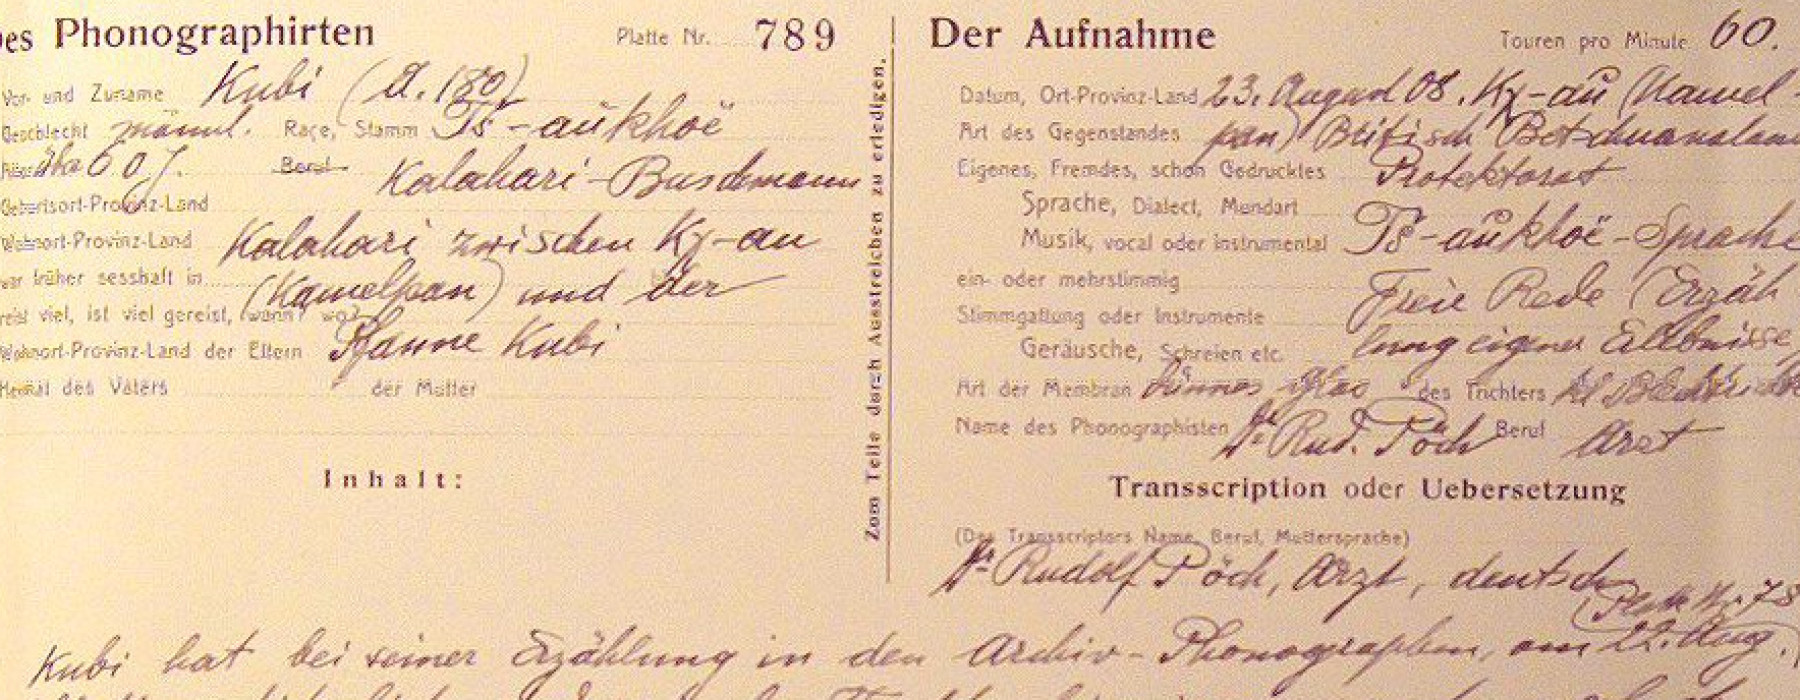 des Phonographirten
Platte Nr. 789
Vor- und Zuname Kubi (A. 180)
Geschlecht männl. Raçe, Stamm Ts-aukhoë
über 60 J. Beruf Kalahari-Buschmann
Geburtsort-Provinz-Land
Wohnort-Provinz-Land Kalahari zwischen Kχ-au
war früher sesshaft in (Kamelpan) und der
reist viel, ist viel gereist, wann? wo?
Wohnort-Provinz-Land der Eltern Pfanne Kubi
Heimat des Vaters der Mutter
Inhalt:
Zum Teile durch Ausstreichen zu erledigen.
Der Aufnahme
Touren pro Minute 60.
Datum, Ort-Provinz-Land 23. August 08. Kχ-au (Kamel-
Art des Gegenstandes pan) Britisch Betschuanalan
Eigenes, Fremdes, schon Gedrucktes Protektorat
Sprache, Dialect, Mundart
Musik, vocal oder instrumental Ts-aukhoë-Sprache
ein- oder mehrstimmig Freie Rede (Erzäh
Stimmgattung oder Instrumente
Geräusche, Schreien etc. lung eigener Erlebnisse
Art der Membran dünnes Glas des Trichters kl
Name des Phonographisten Dr. Rud. Pöch Beruf Arzt
Transscription oder Uebersetzung
(Des Transscriptors Name, Beruf, Muttersprache)
Dr. Rudolf Pöch, Arzt, deutsch
(Platte Nr. 78
Kubi hat bei seiner Erzählung in den Archiv-Phonographen, am 22. Aug.